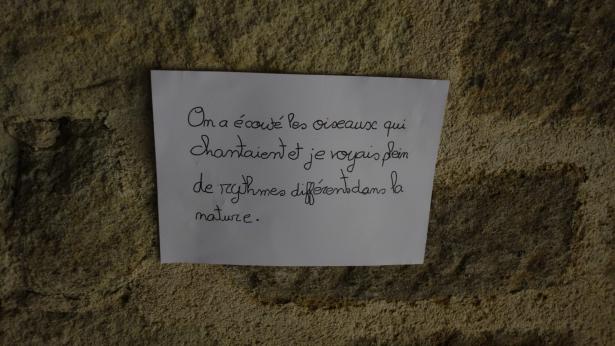 On a écouté les oiseaux qui
chantaient et je voyais plein
de rythmes différents dans la
nature.